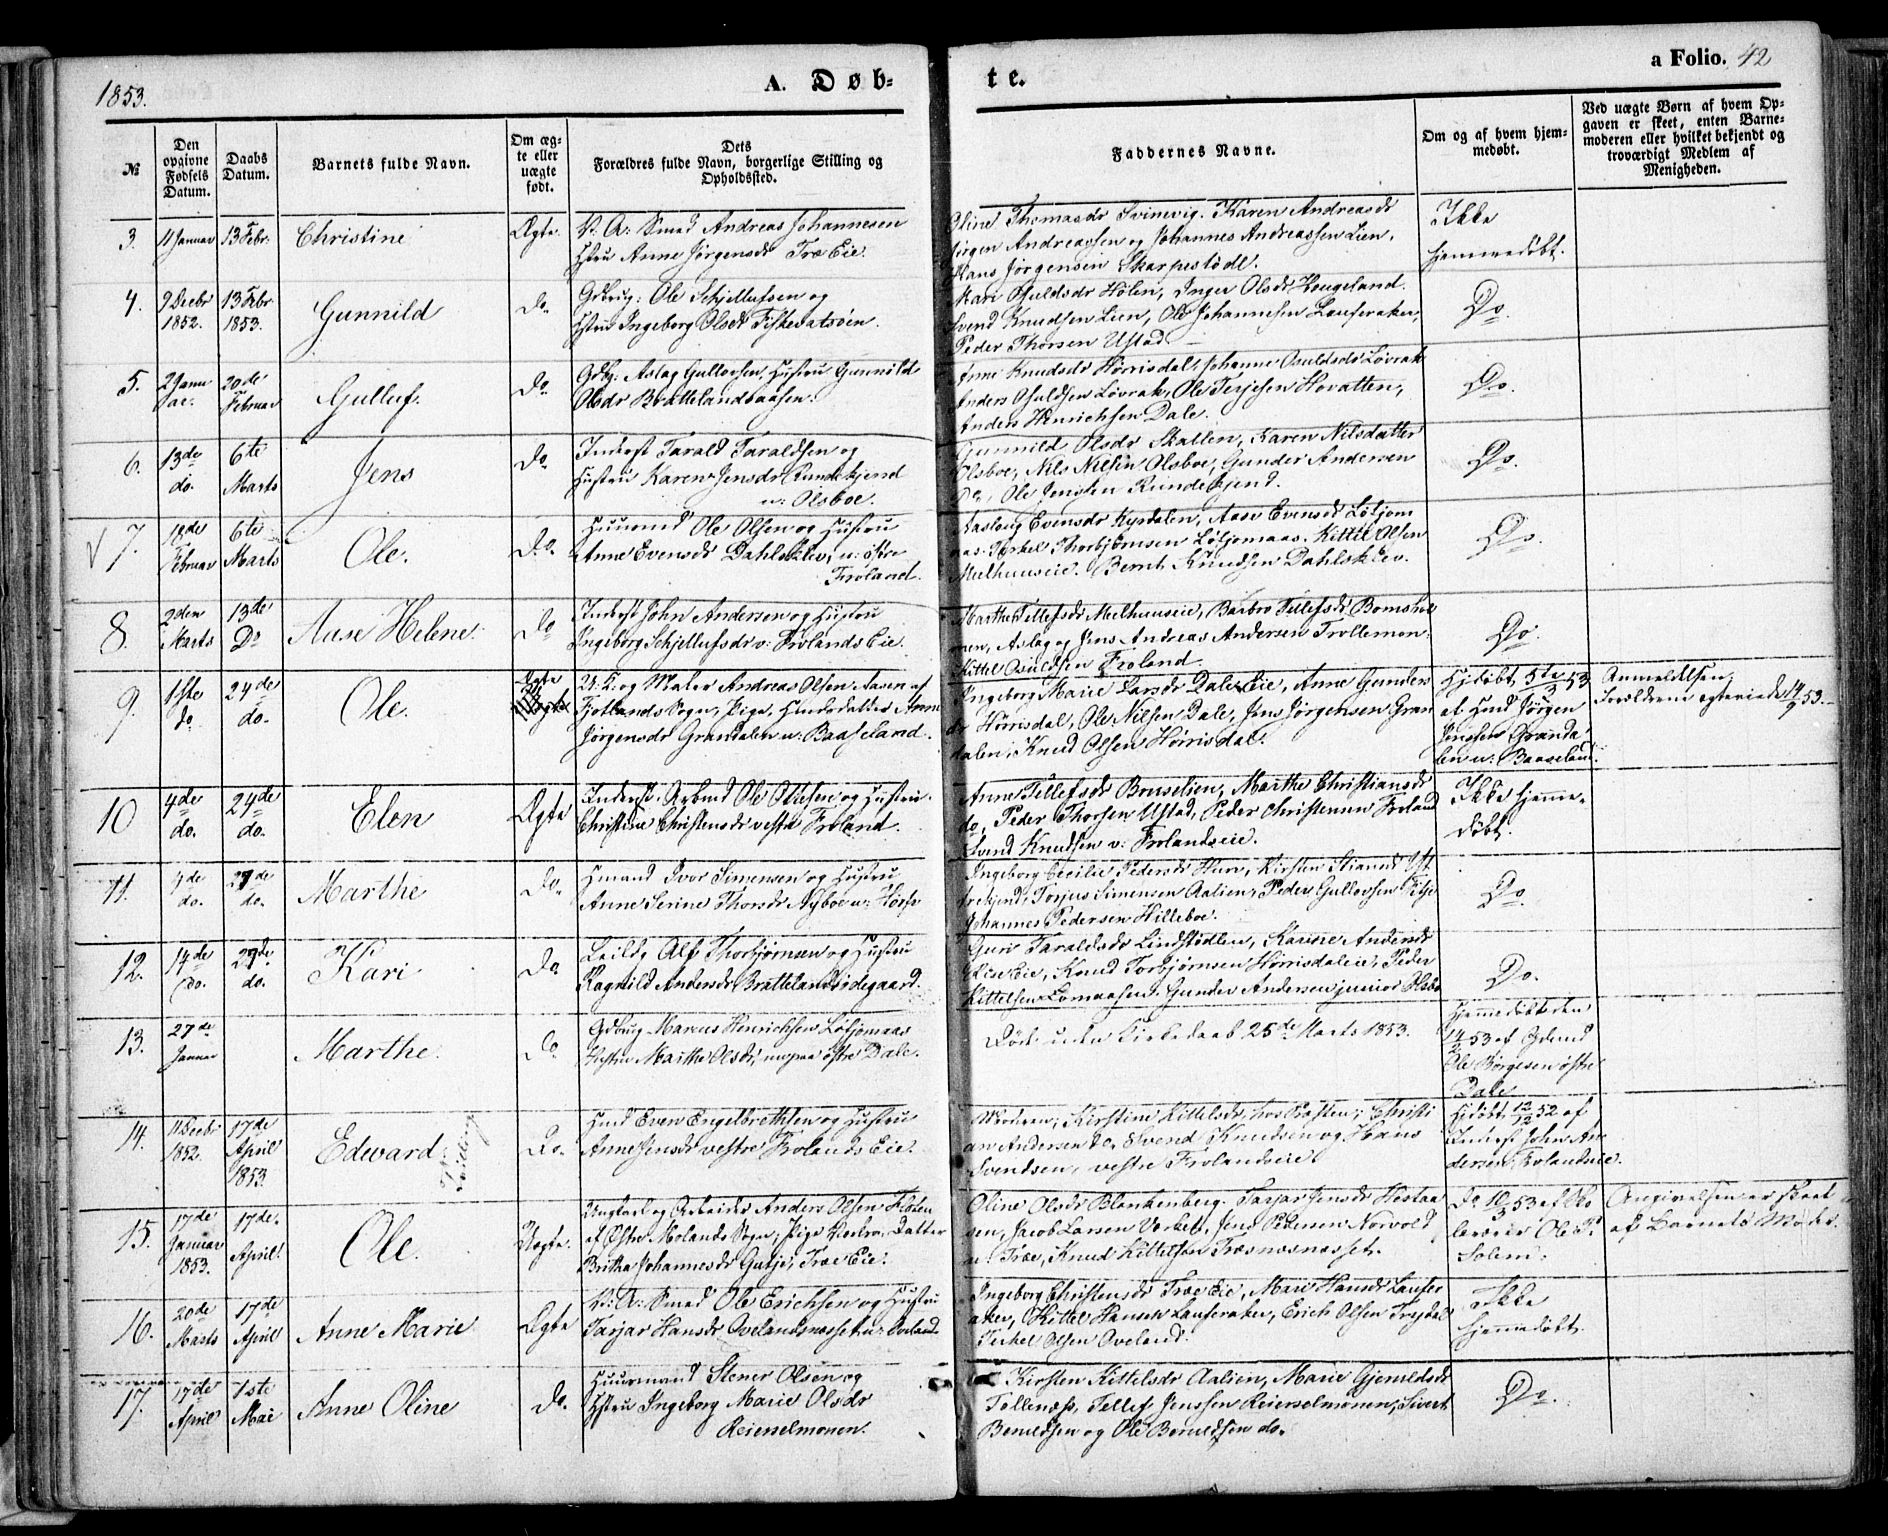 1853.
A. Døb-
te.
a Folio. 42
№
Den
opgivne
Fødsels
Datum.
Daabs
Datum.
Barnets fulde Navn.
Om æg-
te eller
uægte
født.
Dets
Forældres fulde Navn, borgerlige Stilling og
Opholdssted.
Faddernes Navne.
Om og af hvem hjem-
medøbt.
Ved uægte Børn af hvem Op-
gaven er skeet, enten Barne-
moderen eller hvilket bekjendt og
troværdigt Medlem af
Menigheden.
3.
11 Januar
13 Febr.
Christine
Ægte.
Smed Andreas Johannesen
Hstru Anne Jørgensdr Træ Eie.
Oline Thomasdr Svinevig. Karen Andreasdr
Jørgen Andreassen og Johannes Andreassen Lien,
Hans Jørgensen Skarpestødl.
Ikke
hjemmedøbt.
4.
9 Decbr
1852.
13 Febr
1853.
Gunnild
Do
Gdbrug: Ole Schjellufsen og
Hstru Ingeborg Olsdr Fiskevatsøen.
Kari Osuldsdr Hølen, Inger Olsdr Hougeland.
Svend Knudsen Lien, Ole Johannesen Lauveraker,
Peder Thorsen Ustad.
Do.
5.
2 Janu
ar.
20de
Februar
Gulluf.
Do
Gdb: Aslag Gullovsen, Hustru Gunnild
Olsdr Brattelandsaasen.
Anne Knudsdr Hørrisdal, Johanne Osuldsdr Løvrak
Anders Osuldsen Løvrak, Ole Terjesen Hovatten,
Anders Henrichsen Dale.
Do.
6.
13de
do.
6te
Marts
Jens
Do
Inderst Tarald Taraldsen og
Hustru Karen Jensdr Rundekjend
u: Olsboe.
Gunnild Olsdr Skallen, Karen Nilsdatter
Olsboe, Nils Nilsen Olsboe, Gunder Andersen
Do, Ole Jensen Rundekjend.
Do.
7.
18de
Februar
6te
Marts
Ole.
Do.
Huusmd Ole Olsen og Hustru
Anne Evensdr Dahlsklev, u: østre
Froland.
Aaslaug Evensdr Kyrdalen, Aase Evensdr Løljom
aas. Terkel Thorbjørnsen Løljomaas. Kittel Olsen
Melhuuseie. Bernt Knudsen Dahlsklev.
Do.
8.
2den
Marts
13de
Do
Aase Helene.
Do
Inderst John Andersen og Hustru
Ingeborg Schjellufsdr v: Frolands Eie.
Marthe Tellefsdr Melhuuseie, Barbro Tellefsdr Bomshol
men, Aslag og Jens Andreas Andersen Trollemon.
Kittel Osuldsen Froland.
Do.
9.
1ste
do
24de
do.
Ole.
Ægte
U: K: og Maler Andreas Olsen Aasen af
Sogn, Pige, Huusdatter Anne
Jørgensdr Grandalen u: Baaseland.
Ingeborg Marie Larsdr Dale Eie, Anne Gunders
dr Hørrisdal, Ole Nilsen Dale, Jens Jørgensen Gran
dalen, Knud Olsen Hørrisdal.
Hjdøbt 5te/3 53
af Hmd Jørgen
Jensen Granda
len u: Baaseland.
Anmeldelsen,
Forældrene egteviede 14/9 53.
10
4de
do.
24de
do.
Elen
Ægte
Inderst: Arbmd Ole Olsen og Hustru
Christine Christensdr vestre Froland.
Anne Tellefsdr Bruselien, Marthe Christiansdr
do, Peder Thorsen Ustad, Peder Christensen Froland
Svend Knudsen v: Frolandseie.
Ikke hjemme-
døbt.
11.
4de
do.
27de
do.
Marthe
Do.
Hmand Ivor Simensen og Hustru
Anne Serine Thorsdr Nyboe u:
Ingeborg Cecilie Pedersdr Hurv, Kirsten
Torjus Simensen Aalien, Peder Gullovsen
Johannes Pedersen Hilleboe.
Do.
12.
14de
do.
27de
do.
Kari
Do.
Leildg Alf Thorbjørnsen og Hustru
Ragnild Andersdr Brattelandsødegaard.
Guri Taraldsdr Lindstødlen, Karine Andersdr
Eie, Knud Torbjørnsen Hørrisdaleie, Peder
Kittelsen Lomaasen. Gunder Andersen junior Olsbo
Do.
13.
27de
Januar
Marthe.
Do
Gdbrug Marcus Henrichsen Løljomaas
Hustru Marthe Olsdr, østre Dale.
Død uden Kirkedaab 25de Marts 1853.
Hjemmedøbt den
14/2 53 af Gdmd
Ole Børgesen østre
Dale
14.
11 Decbr
1852.
17de
April
1853.
Edward.
Do.
Hmd Even Engelbrethsen og Hustru
Anne Jensdr vestre Frolands Eie.
Moderen, Kirstine Kittelsdr, hos Præsten; Christi
an Andersen do, Svend Knudsen og Hans
Svendsen, vestre Frolandseie.
Hjdøbt 12/12 52 af
Inderst John An
dersen, Frolandseie.
15.
17de
Januar
1853.
17de
April.
Ole.
Uægte.
Ungkarl og Arbeider Anders Olsen Fløten
af Østre Molands Sogn, Pige Datter
Britha Johannesdr Gutje, Træ Eie.
Oline Olsdr Blankenberg. Tarjar Jensdr Hestaa
sen, Jacob Larsen, Jens Pedersen Norvold
u: Træ, Knud Kittelsen Træsnæsnæsset.
Do 10/3 53 af Sko
lelærer Ole P.
Solem.
Angivelsen er skeet
af Barnets Moder.
16.
20de
Marts
17de
April
Anne Marie
Ægte
Smed Ole Erichsen og Hustru
Tarjar Hansdr Ovelandsnæsset u: Oveland.
Ingeborg Christensdr Træ Eie, Marie Hansdr Lauver
aker, Kittel Hansen Lauveraker, Erich Olsen Trejdal
Terkel Olsen Oveland.
Ikke
hjemmedøbt.
17.
17de
April
1ste
Mai
Anne Oline
Do.
Huusmand Stener Olsen og
Hstru Ingeborg Marie Olsdr
Reierselmonen.
Kirsten Kittelsdr Aalien, Marie Gjeruldsdr
Tellenæss, Tellef Jenssen Reierselmonen, Sivert
Beruldsen og Ole Beruldsen do.
Do.